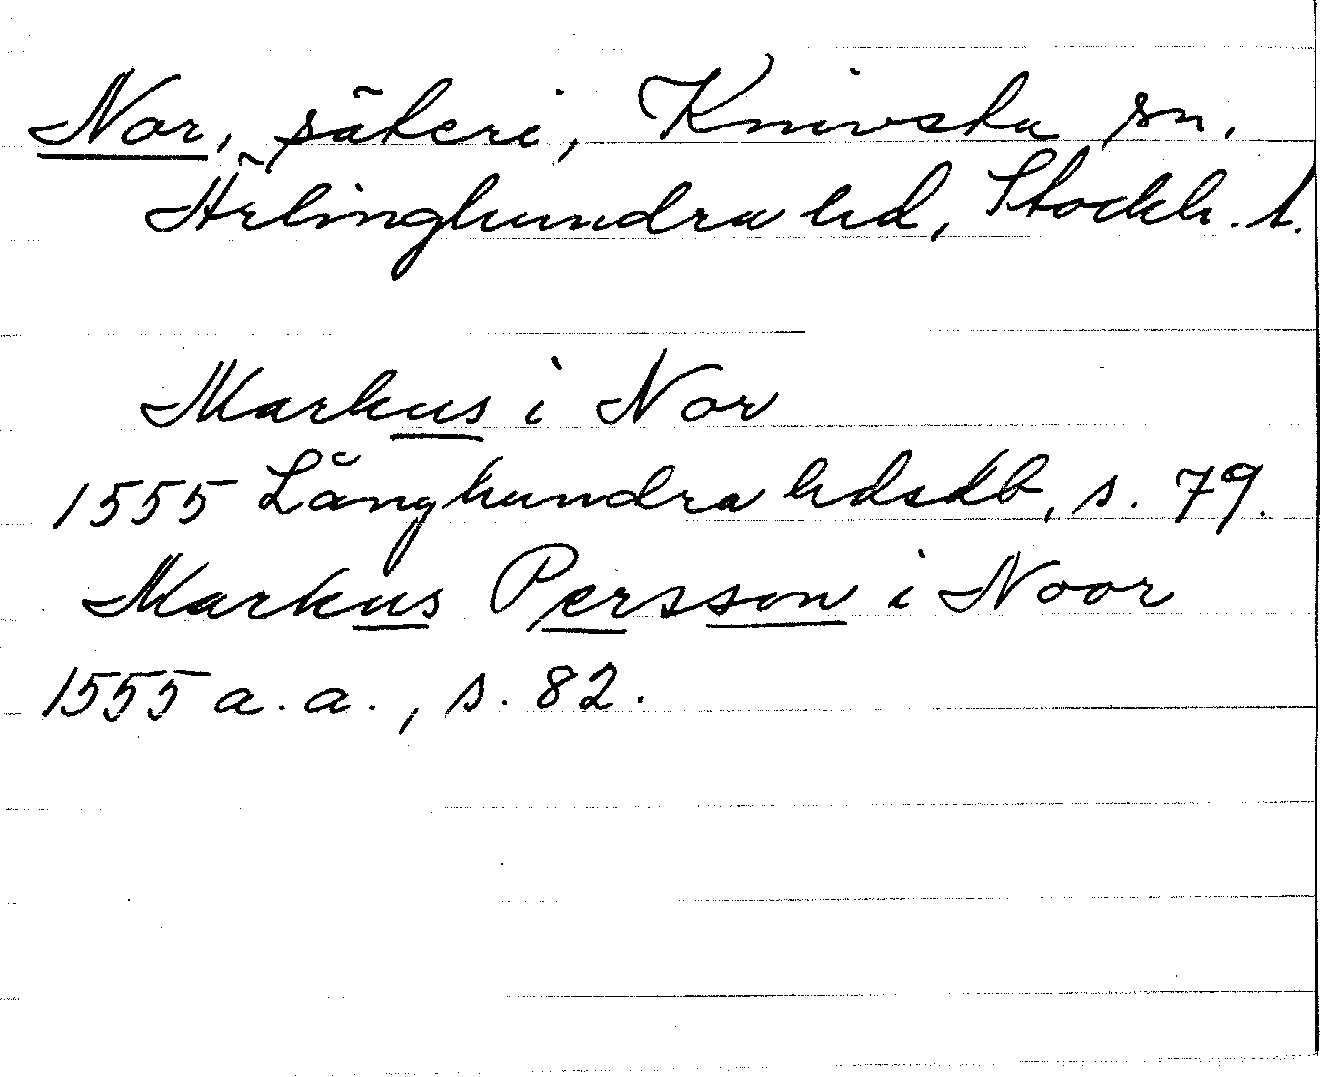 Nor, säteri, Knivsta sn.
Ärlinghundra hd, Stockh. l.
Markus i Nor
1555 Långhundra hdsdb, s. 79.
Markus Persson i Noor
1555 a.a., s. 82.